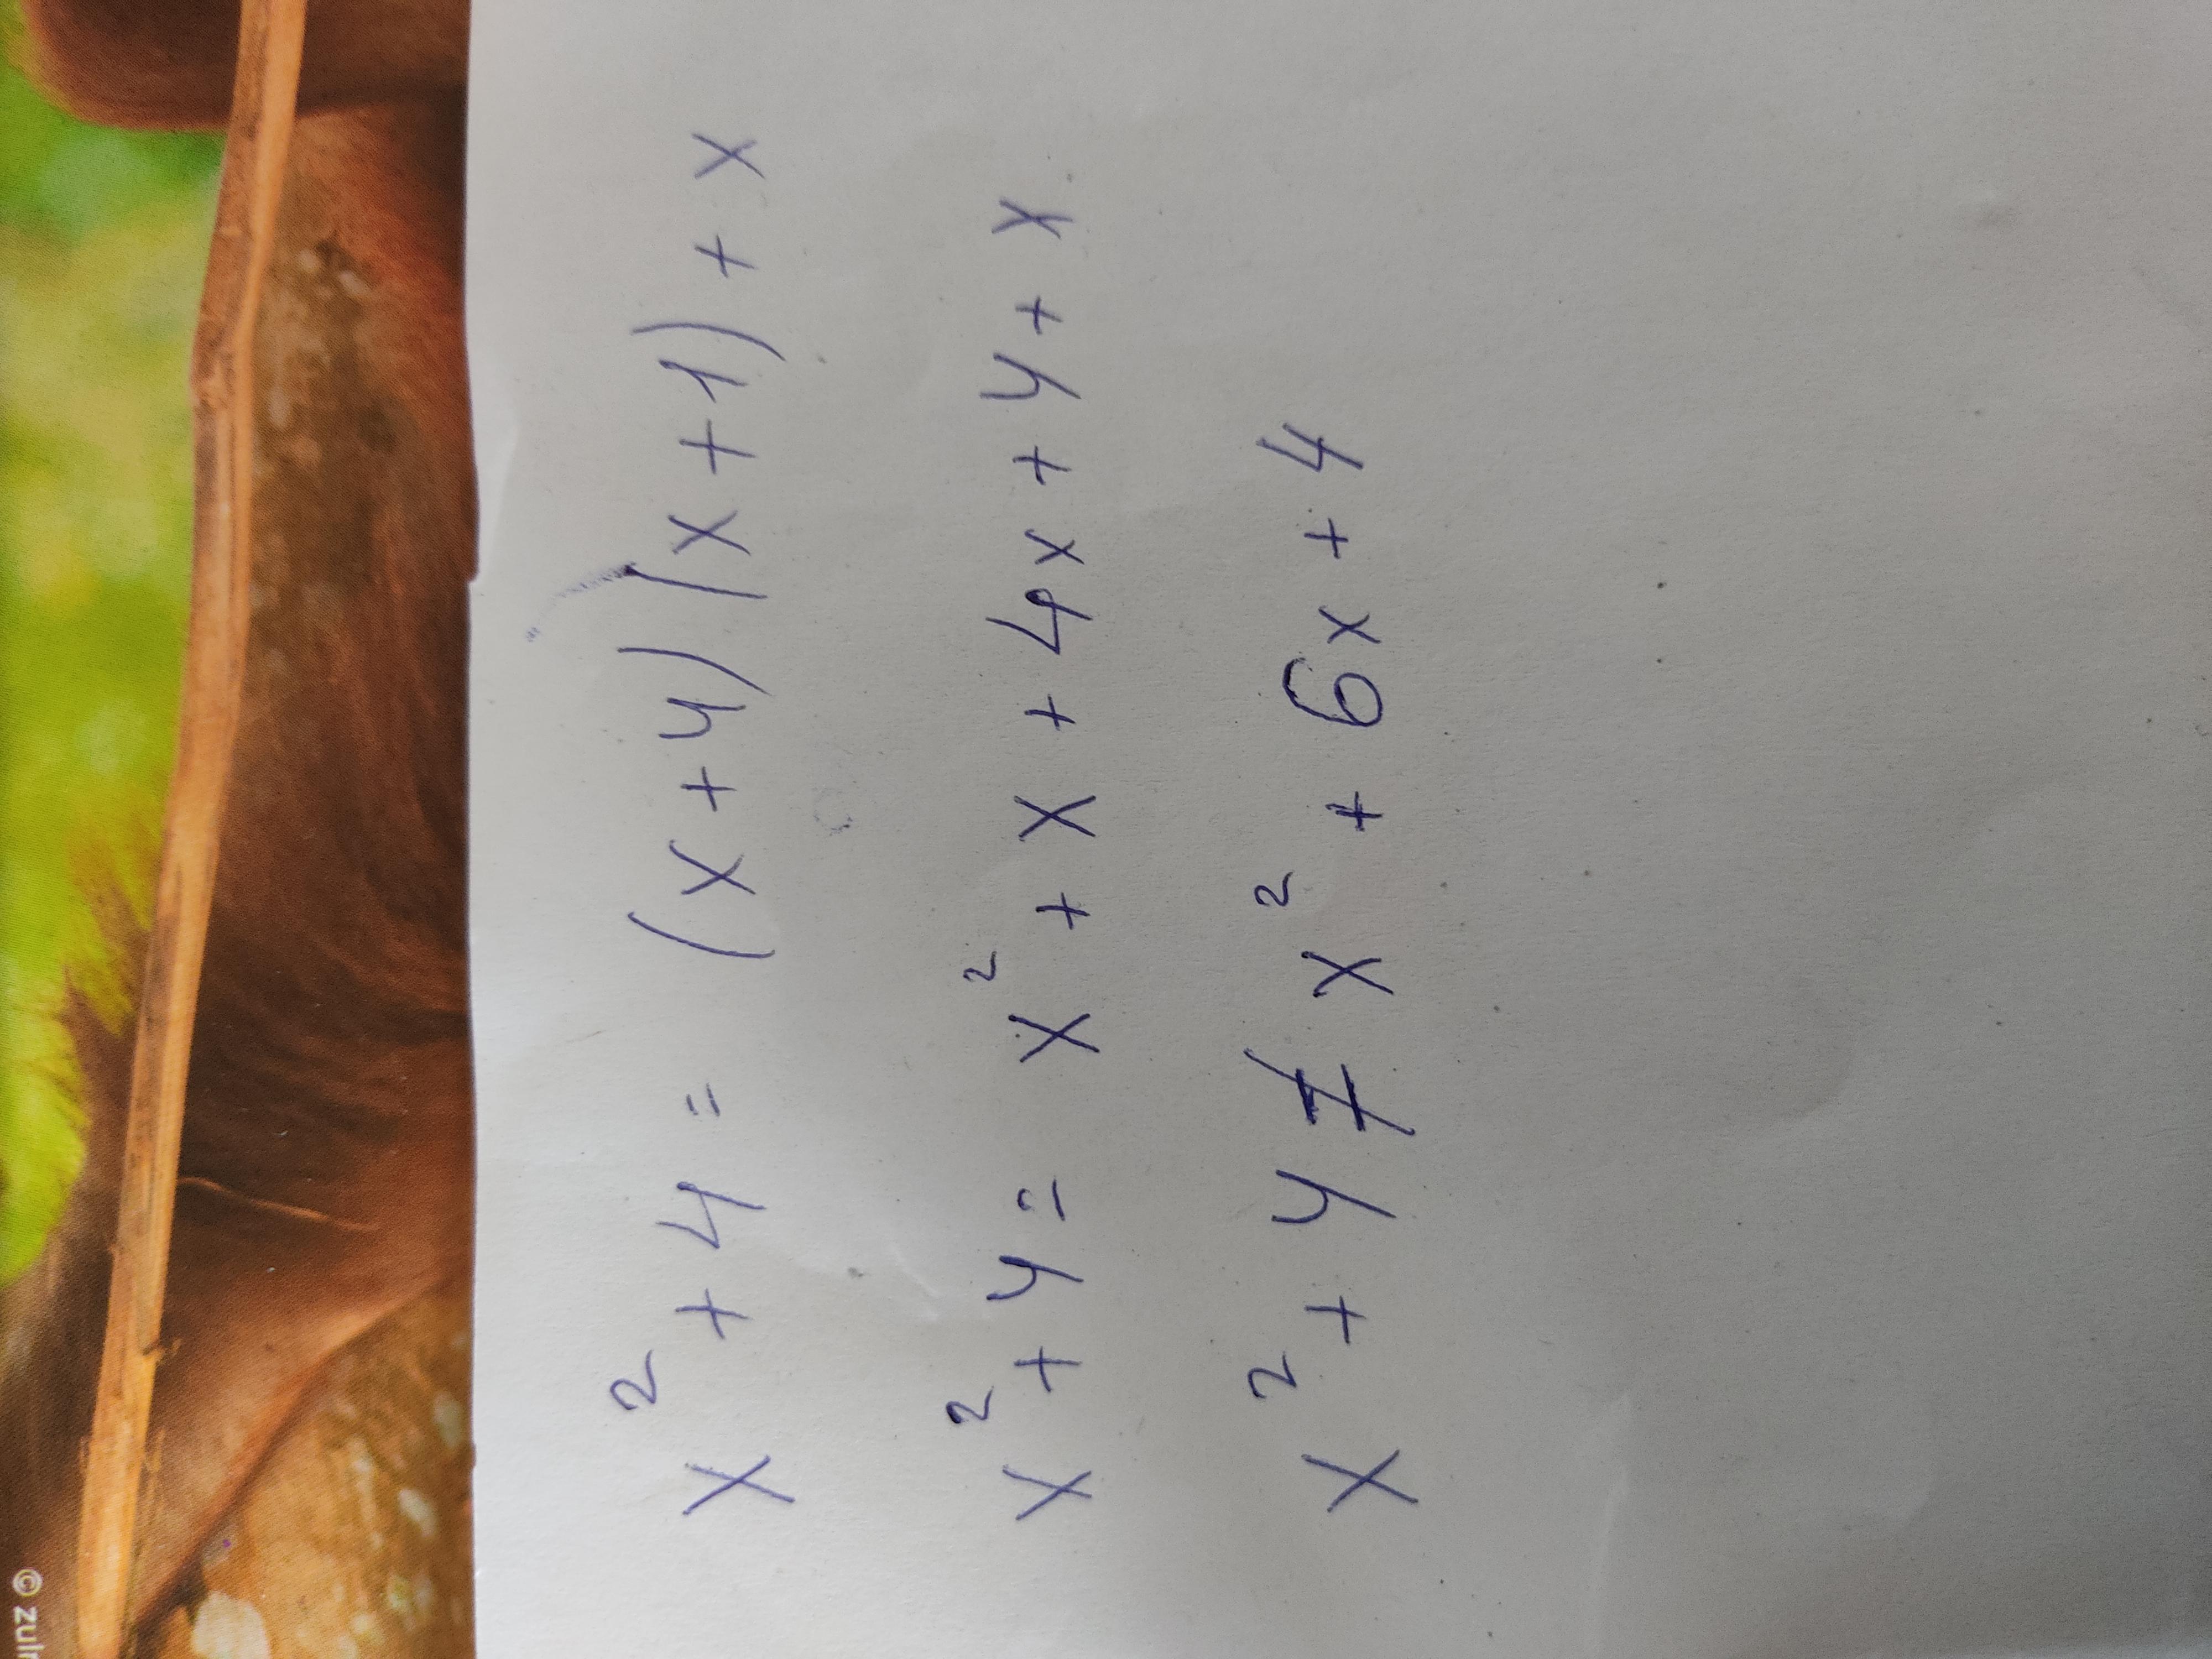 x² + 4 = (x + 4)(x + 1) + x
x² + 4 = x² + x + 4x + 4 + x
x² + 4 ≠ x² + 6x + 4